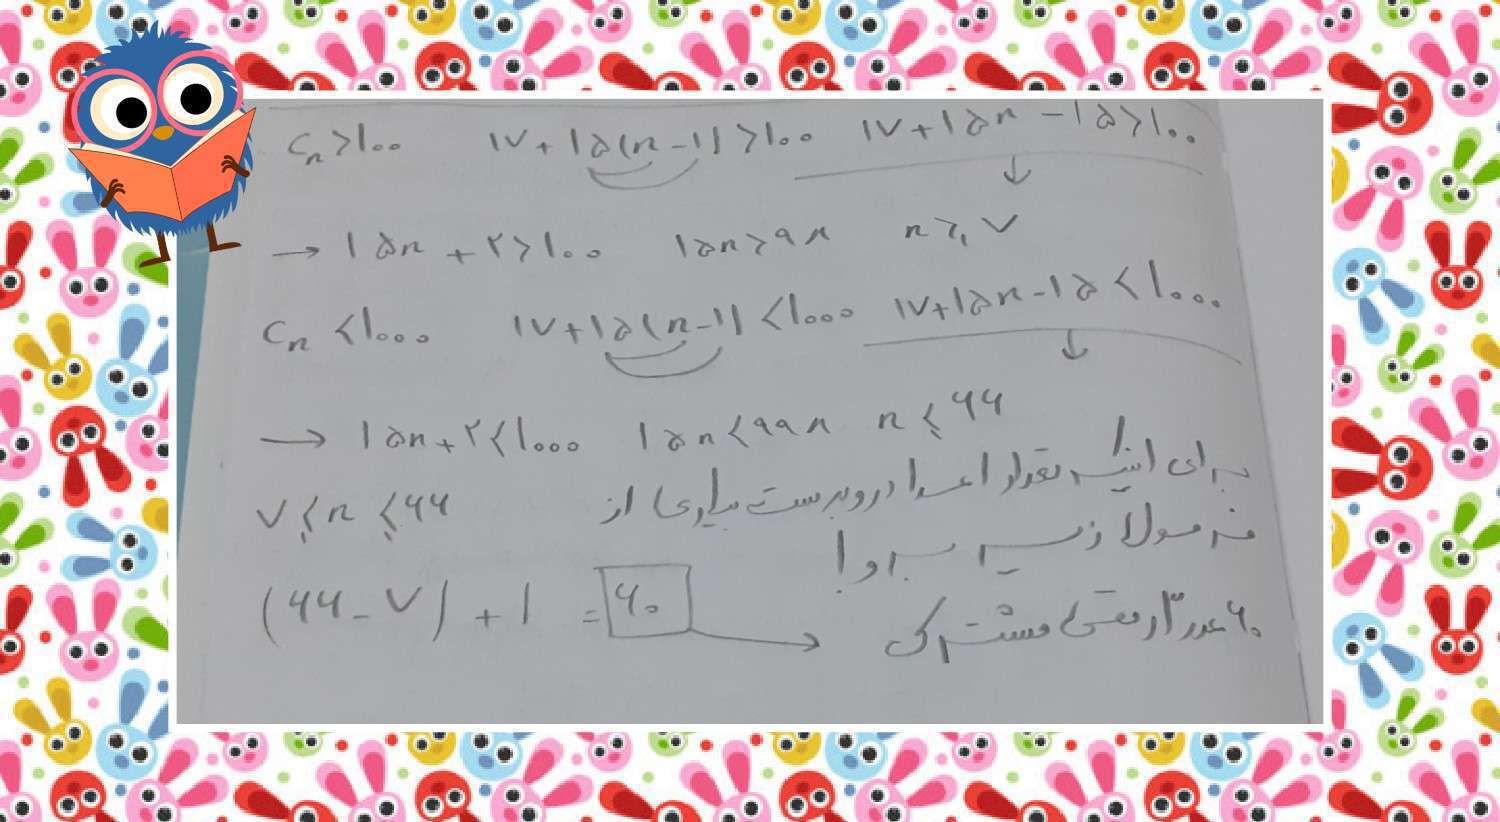 cₙ > ۱۰۰ ۱۷ + ۱۵(n - ۱) > ۱۰۰ ۱۷ + ۱۵n - ۱۵ > ۱۰۰
→ ۱۵n + ۲ > ۱۰۰ ۱۵n > ۹۸ n ⩾ ۷
cₙ < ۱۰۰۰ ۱۷ + ۱۵(n - ۱) < ۱۰۰۰ ۱۷ + ۱۵n - ۱۵ < ۱۰۰۰
→ ۱۵n + ۲ < ۱۰۰۰ ۱۵n < ۹۹۸ n ⩽ ۶۶
۷ ⩽ n ⩽ ۶۶ برای اینکه تعداد اعداد رو بدست بیاری از
فرمول زیر برو!
(۶۶ - ۷) + ۱ = ۶۰ → ۶۰ عدد ۳ رقمی مشترک